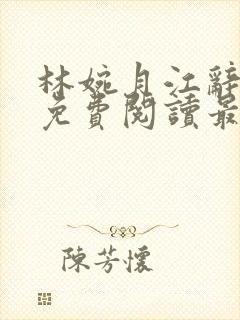 林婉月江辭
免費閱讀最
陳芳懷